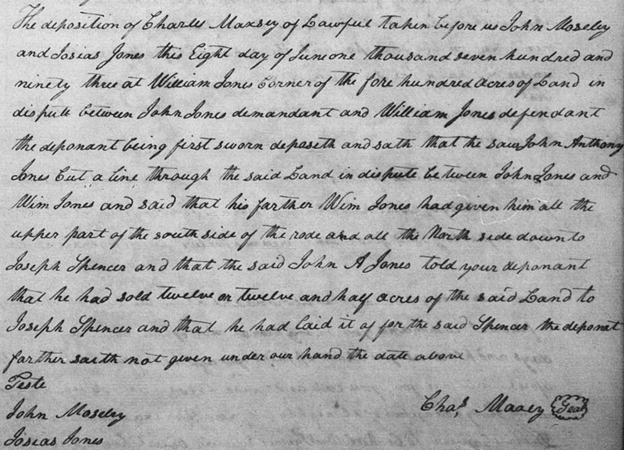 The deposition of Charles Maxsey of Lawful taken before us John Moseley
and Josias Jones this Eight day of June one thousand seven hundred and
ninety three at William Jones Corner of the fore hundred acres of Land in
dispute between John Jones demandant and William Jones defendant
the deponant being first sworn deposeth and sath that he saw John Anthony
Jones Cut a line through the said Land in dispute between John Jones and
Wim Jones and said that his farther Wim Jones had given him all the
upper part of the south side of the rode and all the North side down to
Joseph Spencer and that the said John A Jones told your deponant
that he had sold twelve or twelve and half acres of the said Land to
Joseph Spencer and that he had laid it of for the said Spencer the deponat
farther saith not given under our hand the date above
Teste
John Moseley
Chas Maxey Seal
Josias Jones